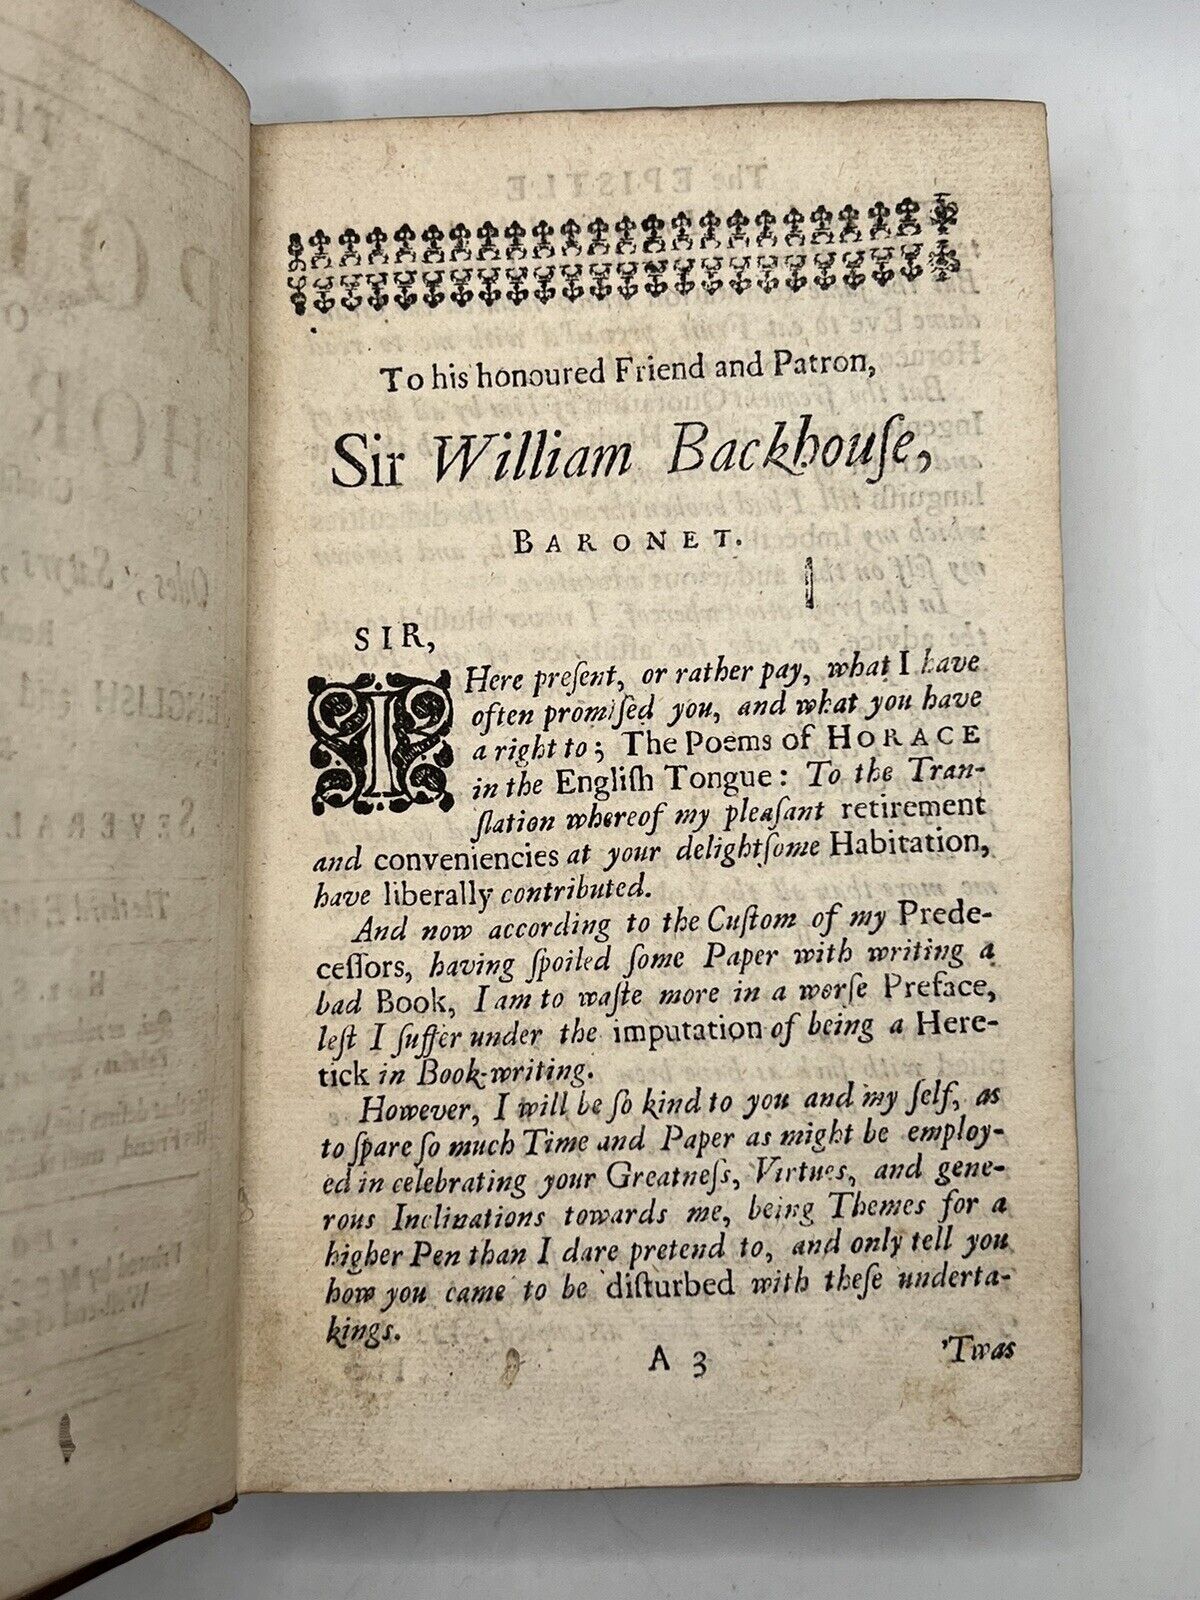 To his honoured Friend and Patron,
Sir William Backhouſe,
BARONET.
SIR,
I Here preſent, or rather pay, what I have
often promiſed you, and what you have
a right to; The Poems of HORACE
in the Engliſh Tongue: To the Tran-
ſlation whereof my pleaſant retirement
and conveniencies at your delightſome Habitation,
have liberally contributed.
And now according to the Cuſtom of my Prede-
ceſſors, having ſpoiled ſome Paper with writing a
bad Book, I am to waſte more in a worſe Preface,
leſt I ſuffer under the imputation of being a Here-
tick in Book-writing.
However, I will be ſo kind to you and my ſelf, as
to ſpare ſo much Time and Paper as might be employ-
ed in celebrating your Greatneſs, Virtues, and gene-
rous Inclinations towards me, being Themes for a
higher Pen than I dare pretend to, and only tell you
how you came to be diſturbed with theſe underta-
kings.
A 3
'Twas